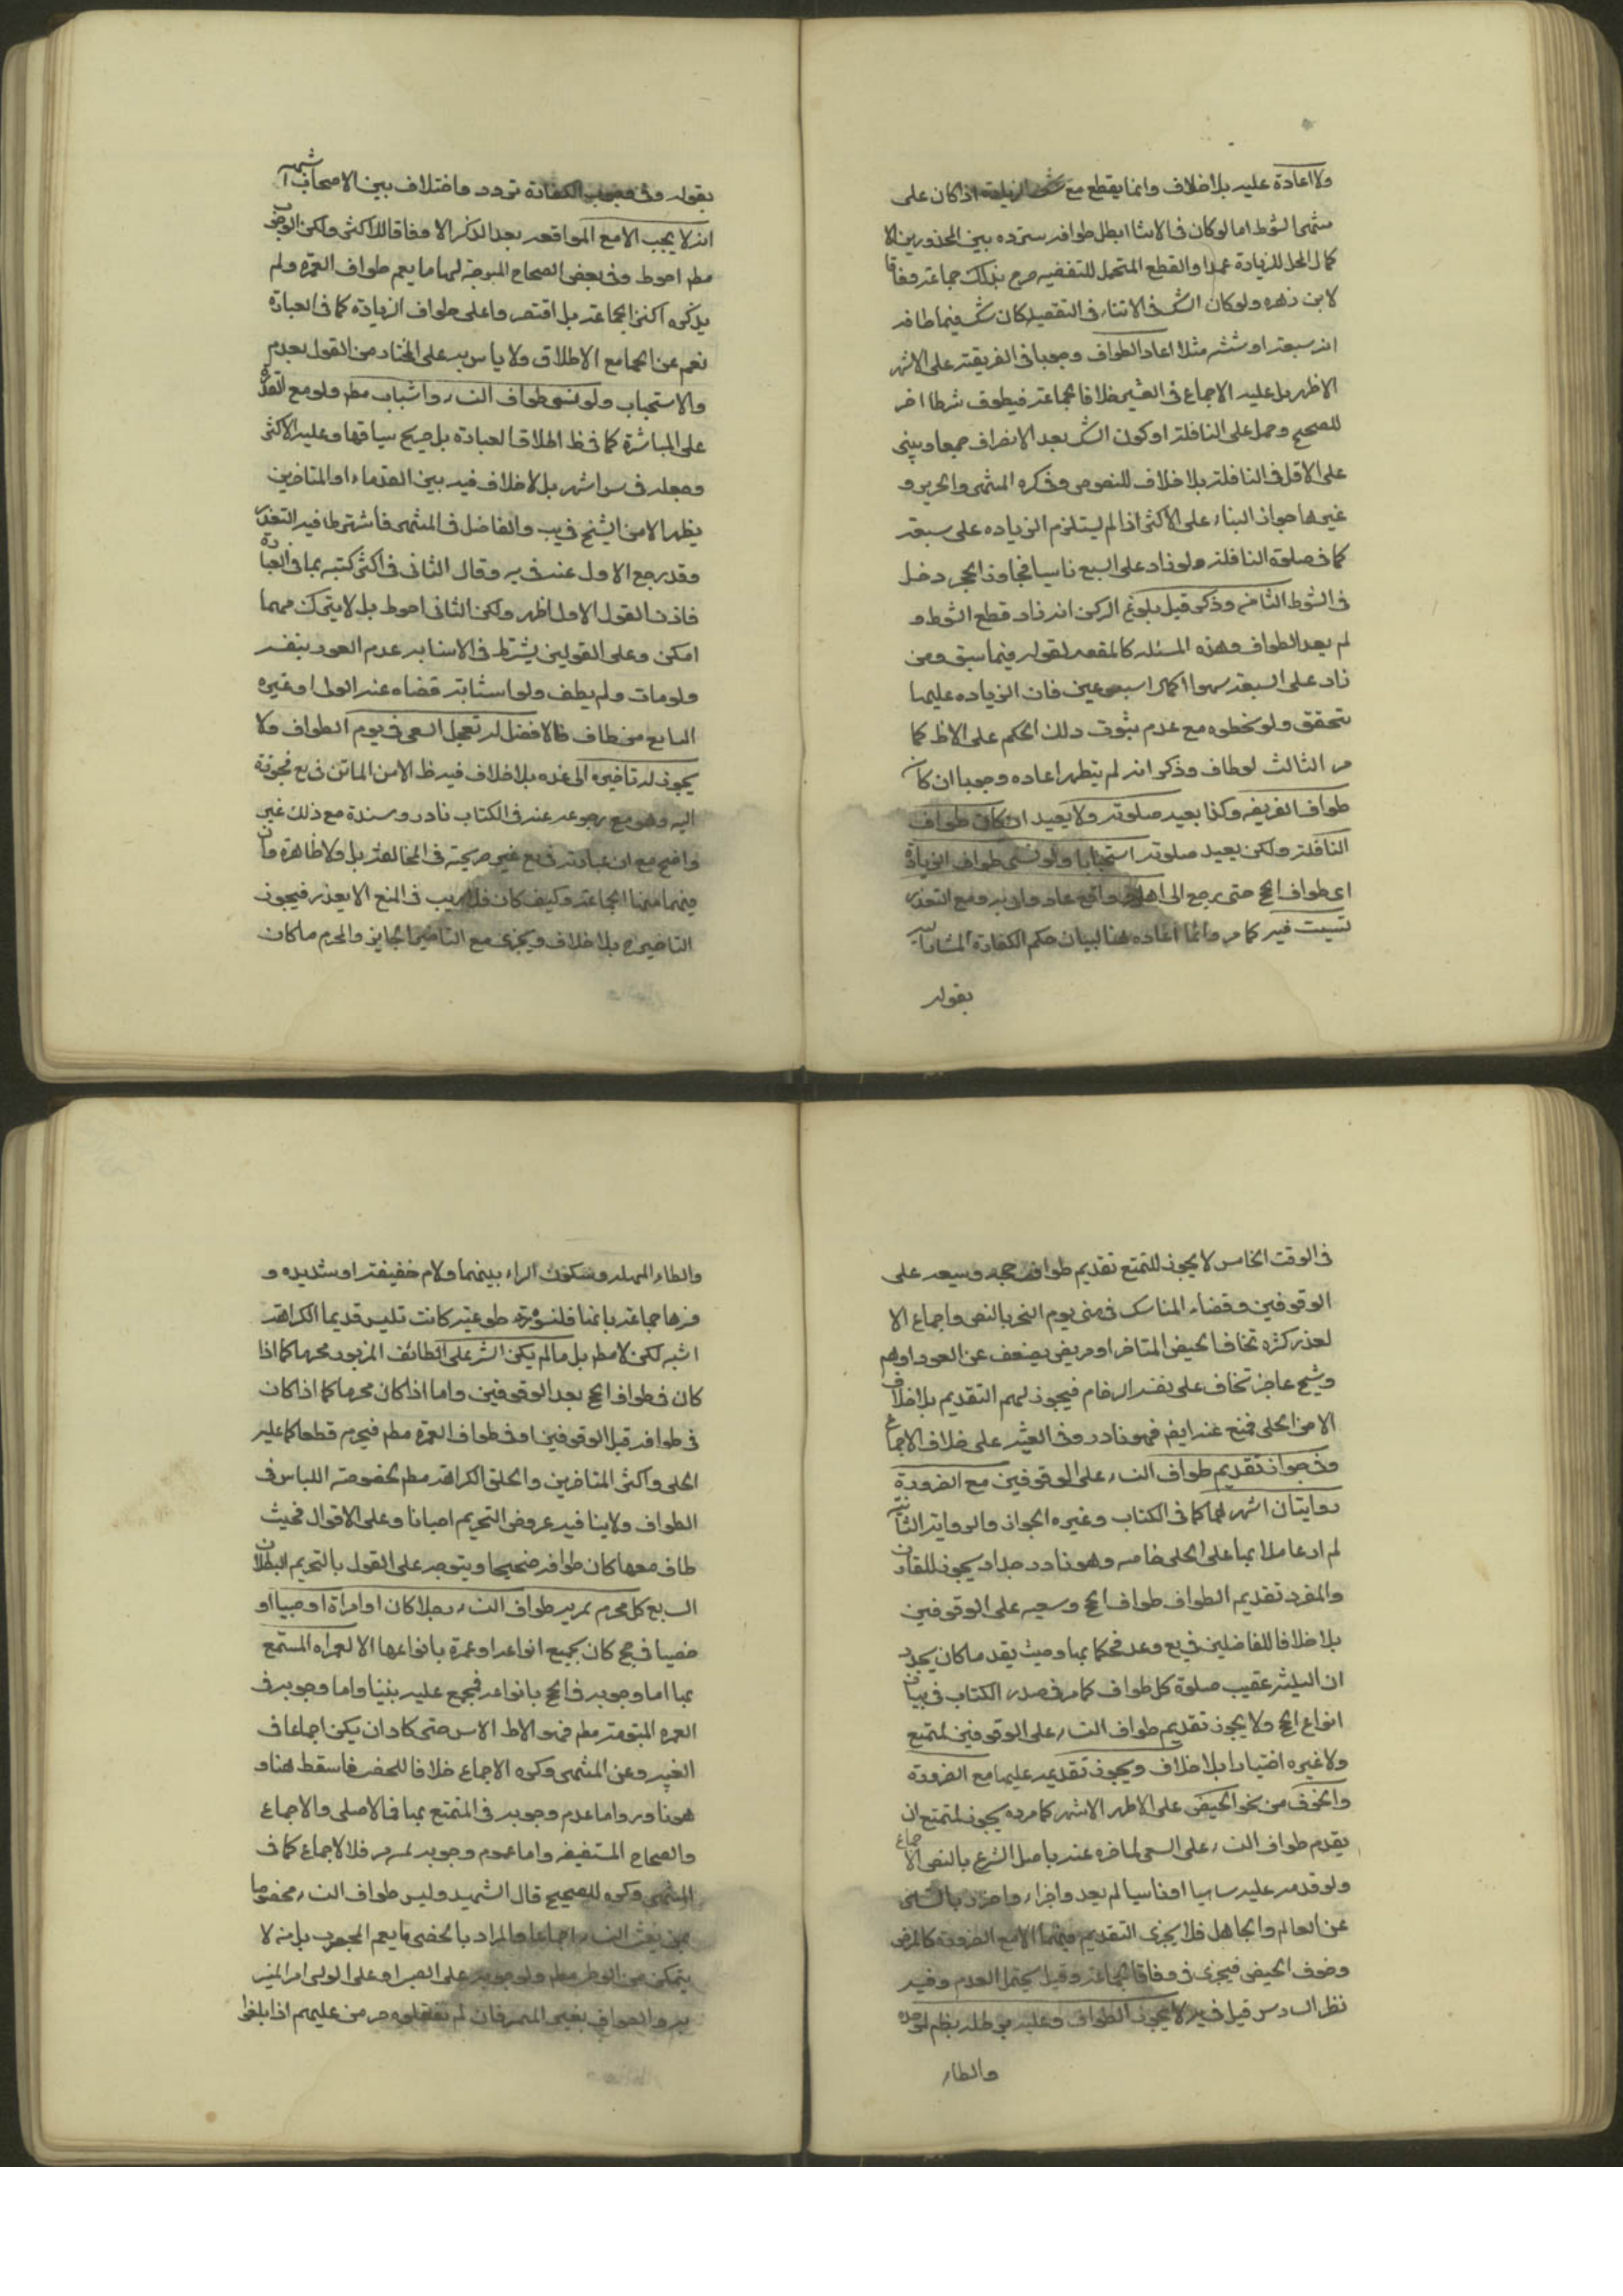 ولا اعادة عليه بلا خلاف وانما يقطع مع شك الزيادة اذا كان على
منتهى الشوط اما لو كان فى الاثنا ابطل طوافه لتردده بين المحذورين الا
كمال المحل للزيادة عمدا والقطع المحتمل للنقيصه صرح بذلك جماعة وفاقا
لابن زهره ولو كان الشك فى الاثناء فى النقصيه كان شك فيما طافه
انه سبعة او ستة مثلا اعاد الطواف وجوبا فى الفريضة على الاشهر
الاظهر بل عليه الاجماع فى الغنيه خلافا لجماعة فيطوف شوطا اخر
للصحيح وحمل على النافلة او كون الشك بعد الانصراف جمعا ويبنى
على الاقل فى النافلة بلا خلاف للنصوص وذكره المنتهى والتحرير و
غيرهما جواز البناء على الاكثر اذا لم يستلزم الزياده على سبعة
كما فى صلوة النافلة ولو زاد على السبع ناسيا فجاوز الحجر دخل
فى الشوط الثامن وذكر قبل بلوغه الركن انه زاد قطع الشوط و
لم يعد الطواف وهذه المسئله كالمقيده لقوله فيما سبق ومن
زاد على السبعة سهوا اكملها اسبوعين فان الزياده عليها
تتحقق ولو بخطوه مع عدم ثبوت ذلك الحكم على الاظ كما
مر الثالث لو طاف وذكر انه لم يتطهر اعاده وجوبا ان كان
طواف الفريضه وكذا يعيد صلوته ولا يعيد ان كان طواف
النافلة ولكن يعيد صلوته استحبابا ولو نسى طواف الزيارة
اى طواف الحج حتى رجع الى اهله وواقع عاد واتى به ومع التعذر
تستنيب فيه كما مر وانما اعاده هنا لبيان حكم الكفارة المشار اليه
بقوله
بقوله وفى وجوب الكفارة تردد واختلاف بين الاصحاب اشهره
انه لا يجب الا مع المواقعه بعد الذكر الا وفاقا للاكثر ولكن الوجوب
مطم احوط وفى بعض الصحاح الموجبة لها ما يعم طواف العمرة ولم
يذكره اكثر الجماعة بل اقتصروا على طواف الزيارة كما فى العبارة
نعم عن الجامع الاطلاق ولا باس به على المختار من القول بعدم
والاستحباب ولو نسى طواف النساء استناب مطم ولو مع القدرة
على المباشرة كما فى ظ اطلاق العبارة بل صريح سياقها وعليه الاكثر
وجعله فى س اشهر بل لا خلاف فيه بين القدماء او المتاخرين
يظهر الا من الشيخ فى يب والفاضل فى المنتهى فاشترطا فيه التعذر
وقد رجع الاول عنه فى ير وقال الثانى فى اكثر كتبه بما فى العبارة
فاذن القول الاول اظهر ولكن الثانى احوط بل لا يترك مهما
امكن وعلى القولين يشترط فى الاستنابه عدم العود بنفسه
ولو مات ولم يطف ولو استنابة قضاه عنه الولى او غيره
الرابع من طاف فالافضل له تعجيل السعى فى يوم الطواف ولا
يجوز له تاخيره الى غده بلا خلاف فيه ظ الا من الماتن فى يع فجوزة
اليه وهو مع رجوعه عنه فى الكتاب نادر ومستنده مع ذلك غير
واضح مع ان عبارته فى يع غير صريحة فى المخالفة بل ولا ظاهرة وان
فيهما منها الجماعة وكيف كان فلا ريب فى المنع الا بعذر فيجوز
التاخير بلا خلاف ويجزى مع التاخير الجايز والمحرم ما كان
فى الوقت الخامس لا يجوز للمتمتع تقديم طواف حجه وسعيه على
الوقوفين وقضاء المناسك فى منى يوم النحر بالنص واجماع الا
لعذر كمره تخاف الحيض المتاخر او مريض يضعف عن العود او هم
وشيخ عاجز تخاف على نفسه الزحام فيجوز لهم التقديم بلا خلاف
الا من الحلى فمنع عنه ايضم فهو نادر وفى الغنيه على خلافه الاجماع
وفى جواز تقديم طواف النساء على الوقوفين مع الضرورة
روايتان اشهرهما كما فى الكتاب وغيره الجواز والرواية الثانية
لم ار عاملا بها على الحلى خاصه وهو نادر جدا ويجوز للقارن
والمفرد تقديم الطواف طواف الحج وسعيه على الوقوفين
بلا خلاف الفاضلين فى يع وعد فحكما بها وحيث يقدما كان يجدد
ان التلبية عقيب صلوة كل طواف كما مر فى صدر الكتاب فى بيان
انواع الحج ولا يجوز تقديم طواف النساء على الوقوفين لمتمتع
ولا غيره اختيارا بلا خلاف ويجوز تقديمه عليهما مع الضرورة
والخوف من نحو الحيض على الاظهر الاشهر كما مر ده يجوز لمتمتع ان
يقدم طواف النساء على السعى لتاخره عنه باصل الشرع بالنص الاجماع
ولو قدمه عليه ساهيا او ناسيا لم يعد واجزاء واحترز بالساهى
عن العالم والجاهل فلا يجزى التقديم فيهما الا مع الضرورة كالمرض
وخوف الحيض فيجزى فى وفاقا لجماعة وقيل يحتمل العدم وفيه
نظر السادس قيل فى ير لا يجوز الطواف وعليه برطله بضم الموحده
والطاء
والطاء المهمله وسكون الراء بينهما ولام خفيفة او شديده و
فسرها جماعة بانها قلنسوة طويلة كانت تلبس قديما الكراهة
اشبه لكن لا مطم بل ما لم يكن الستر على الطائف المزبور محرما كما اذا
كان فى طواف الحج بعد الوقوفين واما اذا كان محرما كما اذا كان
فى طوافه قبل الوقوفين او فى طواف العمرة مطم فيحرم قطعا كما عليه
الحلى واكثر المتاخرين والحلق الكراهة مطم لخصوصة اللباس فى
الطواف ولا ينافيه عروض التحريم احيانا وعلى الاقوال فحيث
طاف معها كان طوافه صحيحا ويتوجه على القول بالتحريم البطلان
السابع كل محرم يمر به طواف النساء رجلا كان او امراة او صبيا او
خصيا فى حج كان بجميع انواعه او عمرة بانواعها الا العمراه المتمتع
بها اما وجوبه فى الحج بانواعه فمجمع عليه بيننا واما وجوبه فى
العمره المبتولة مطم فهو الاظ الاس حتى كاد ان يكن اجماعا ف
الغنيه وعن المنتهى وكره الاجماع خلافا للجعفى فاسقط هنا و
هو نادر واما عدم وجوبه فى المتمتع بها فالاصل والاجماع
والصحاح المستفيضه واما عموم وجوبه لمن مر فللاجماع كما ف
المنتهى وكره للصحيح قال الشهيد وليس طواف النساء مخصوصا
بمن يغشى النساء اجماعا والمراد بالخصى ما يعم المجبوب بل من لا
يتمكن من الوطء مطم ولوجوبه على الصبى او على الولى امر المميز
به والطواف بغير المميز فان لم يفعلوه حرمن عليهم اذا بلغوا